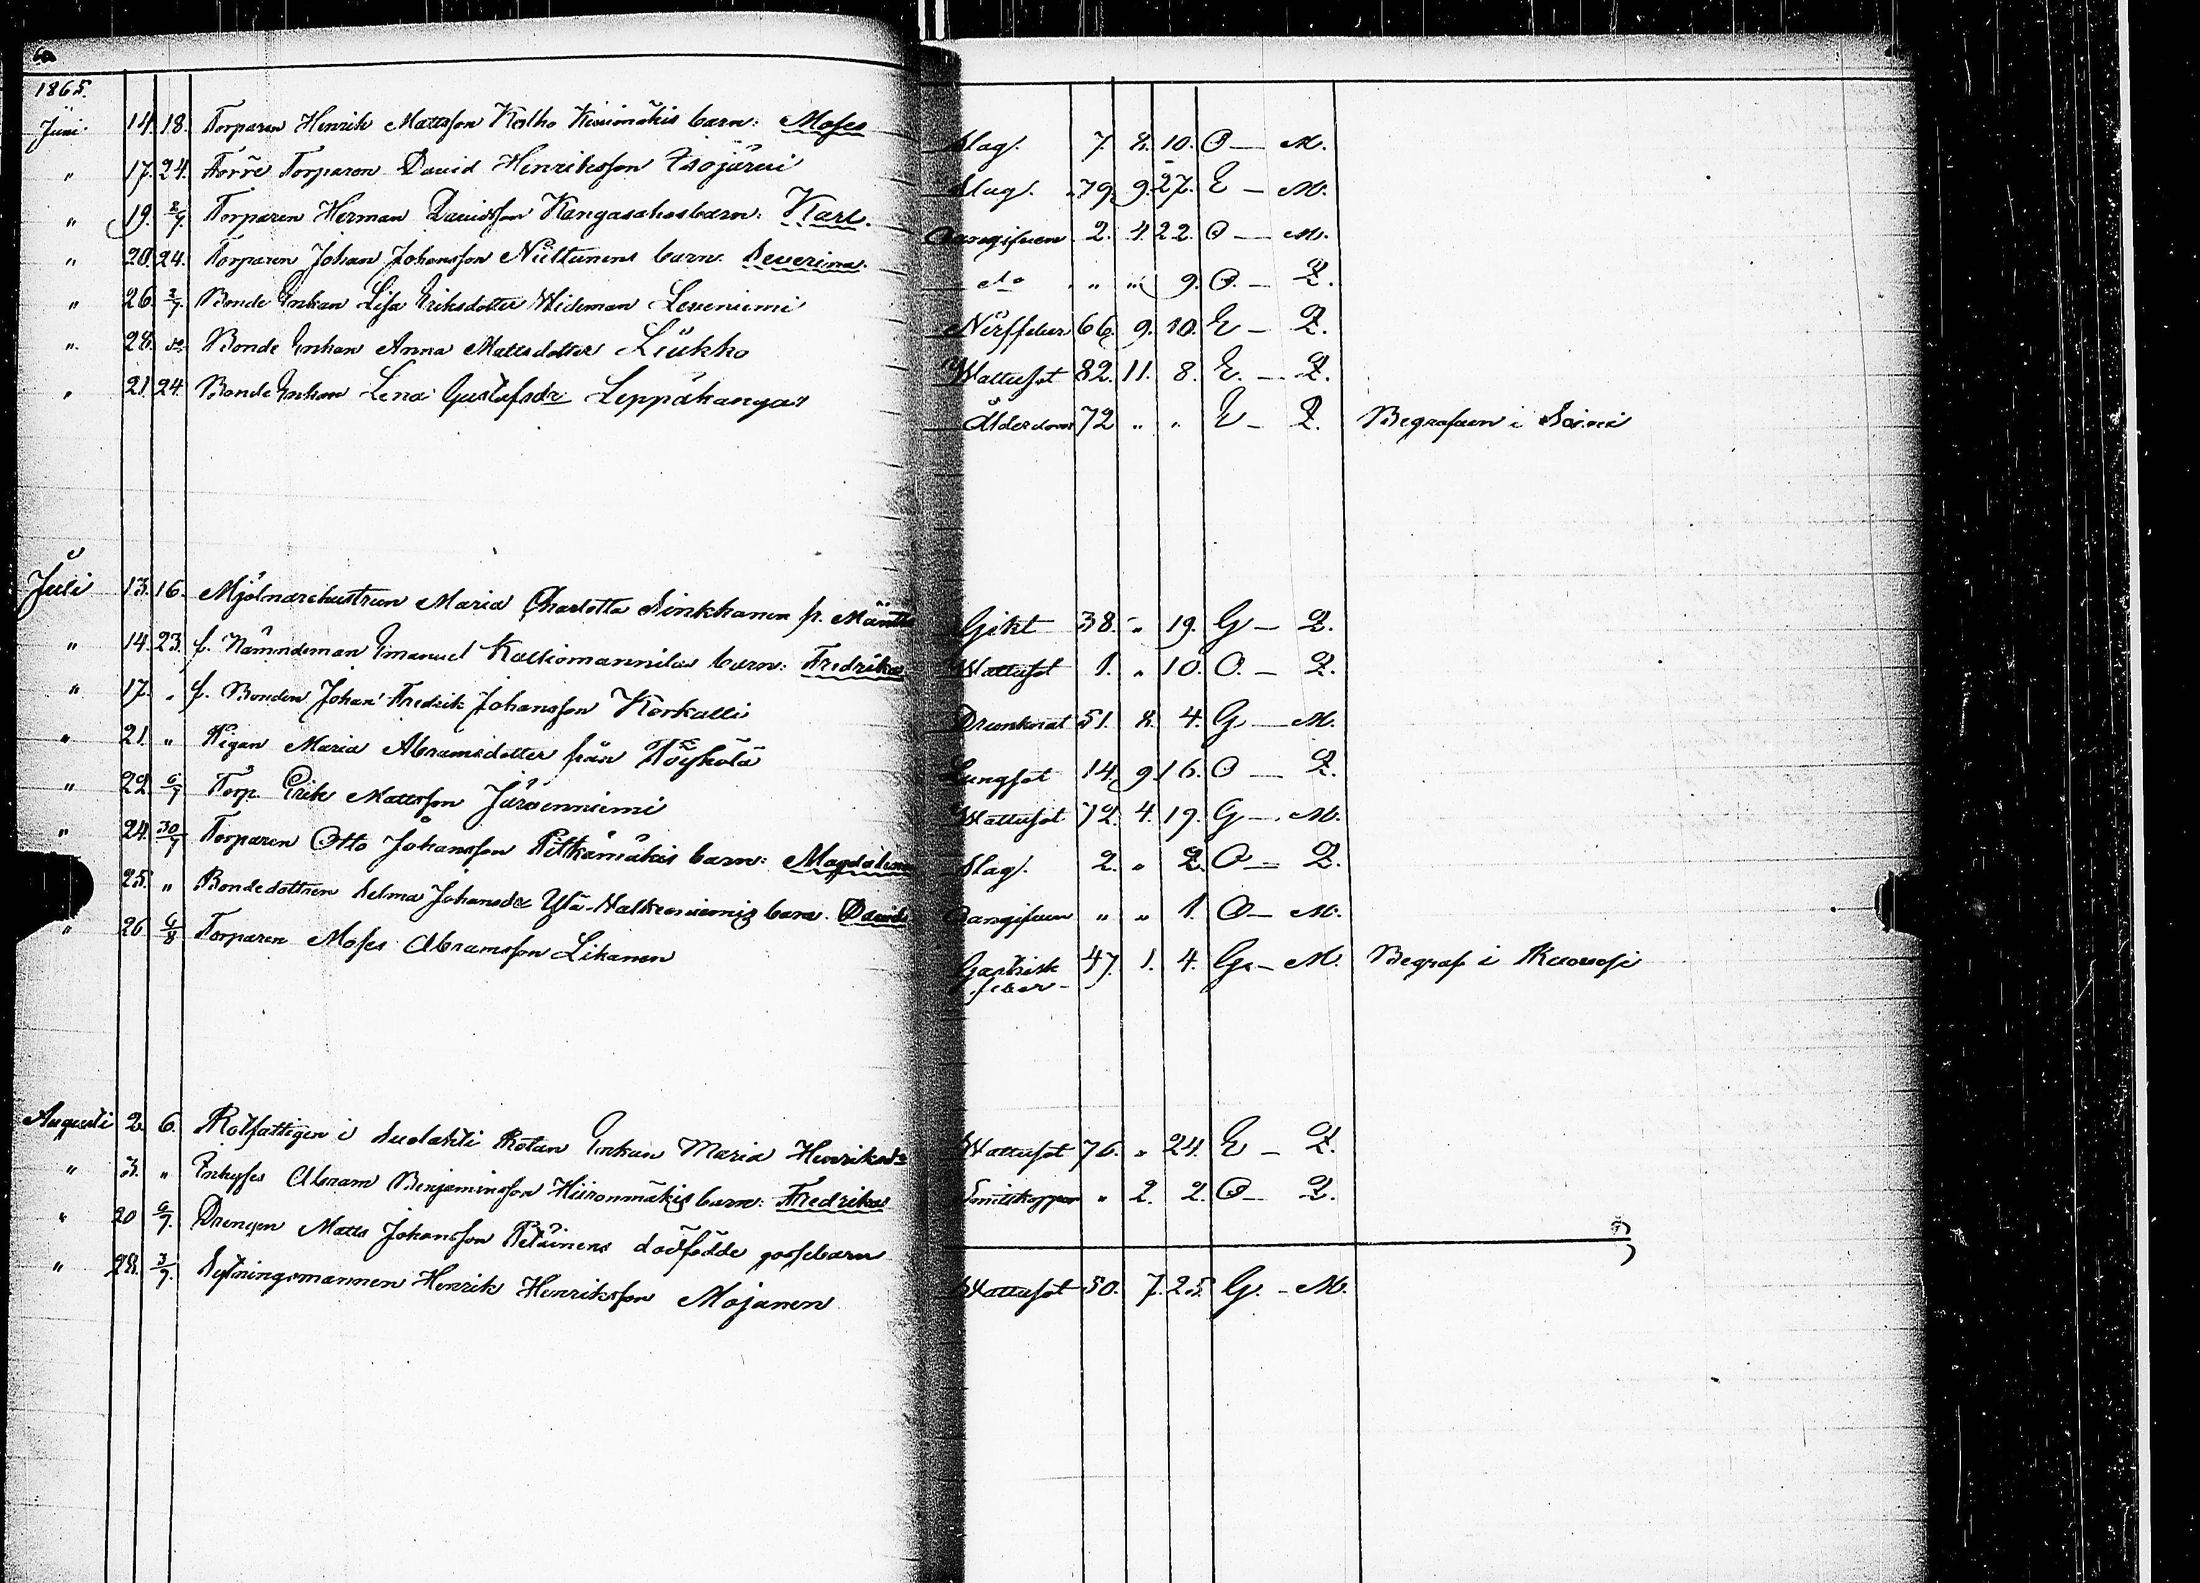 1865.
Juni 14. 18. Torparen Henrik Mattsson Kolho Kiviniäkis barn: Moses Slag. 7. 8. 10. O — M.
" 17. 24. Förre Torparen David Henriksson Isojärvi Slag. 79. 9. 27. E — M.
" 19. 2/7. Torparen Herman Davidsson Kangasahosbarn: Karl. Oangifven 2. 4. 22. O — M.
" 20. 24. Torparen Johan Johansson Niittunens barn. Severina. do " " 9. O. — Q.
" 26. 2/7. Bonde Enkan Lisa Eriksdotter Wideman Leveniemi Nerffeber 66. 9. 10. E — Q.
" 28. do Bonde Enkan Anna Mattsdotter Liukko Wattusot 82. 11. 8. E. — Q.
" 21. 24. Bonde Enkan Lena Gustafsdr Leppäkangas Ålderdom 72 " " E — Q. Begrafven i Soini
Juli 13. 16. Mjölnarehustrun Maria Charlotta Sinkkanen fr. Mänttä Gikt 38. " 19. G — Q.
" 14. 23. f. Nämndeman Emanuel Kalliomannilas barn: Fredrika Wattusot 1. " 10. O. — Q.
" 17. " f. Bonden Johan Fredrik Johansson Korkalli Drunknat 51. 8. 4. G — M.
" 21. " Pigan Maria Abramsdotter från Pöyhölä Lungsot 14. 9. 16. O — Q.
" 22. 6/7 Torp. Erik Mattsson Järvenniemi Wattusot 72. 4. 19. G — M.
" 24. 30/7 Torparen Otto Johansson Pitkämäkis barn: Magdalena Slag. 2. " 2. O — Q.
25. " Bondedottren Selma Johansdr Ylä-Walkeaniemis barn. David Oangifven " " 1. O — M.
" 26 6/8 Torparen Moses Abramsson Likanen Gastrisk feber 47. 1. 4. G. — M. Begraf. i Kuorvesi
Augusti 2. 6. Rotfattigen i Suolahti Rotan Enkan Maria Henriksdr Wattusot 76. " 24. E — Q.
" 3. " Inhyses Abram Benjaminsson Hiironmäkis barn: Fredrika Smittkoppor " 2. 2. O — Q.
" 20 6/7. Drengen Matts Johansson Petäinens dödfödde gossebarn
" 28. 3/7. Sytningsmannen Henrik Henriksson Mojanen Wattusot 50. 7. 25. G. — M.